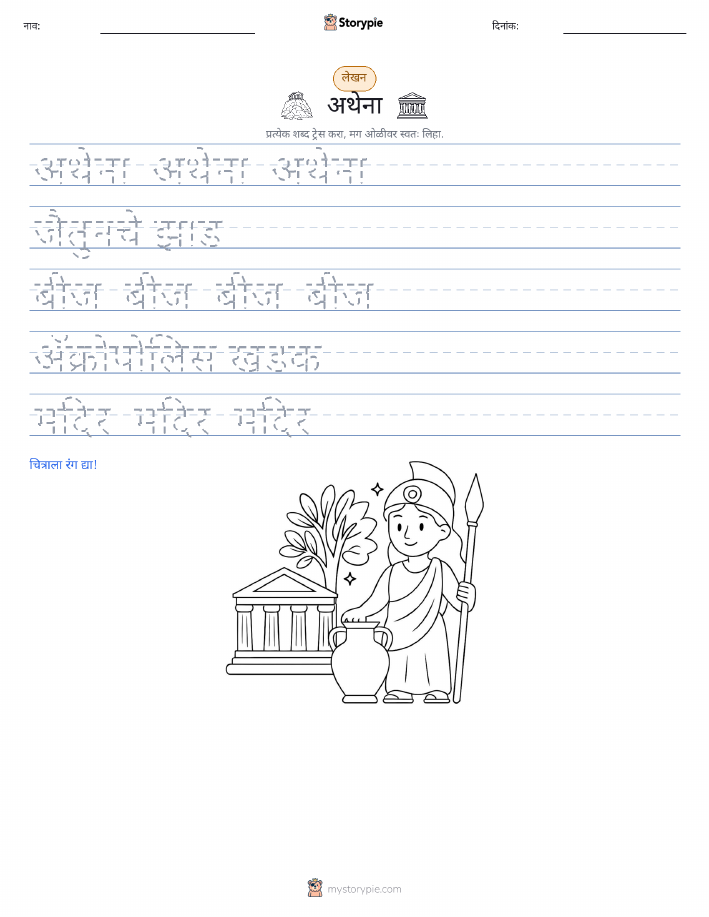 नाव: Storypie दिनांक:
लेखन
अथेना
प्रत्येक शब्द ट्रेस करा, मग ओळीवर स्वतः लिहा.
अथेना अथेना अथेना
जैतुनचे झाड
बीज बीज बीज बीज
ॲक्रोपोलिस खडक
मंदिर मंदिर मंदिर
चित्राला रंग द्या!
mystorypie.com